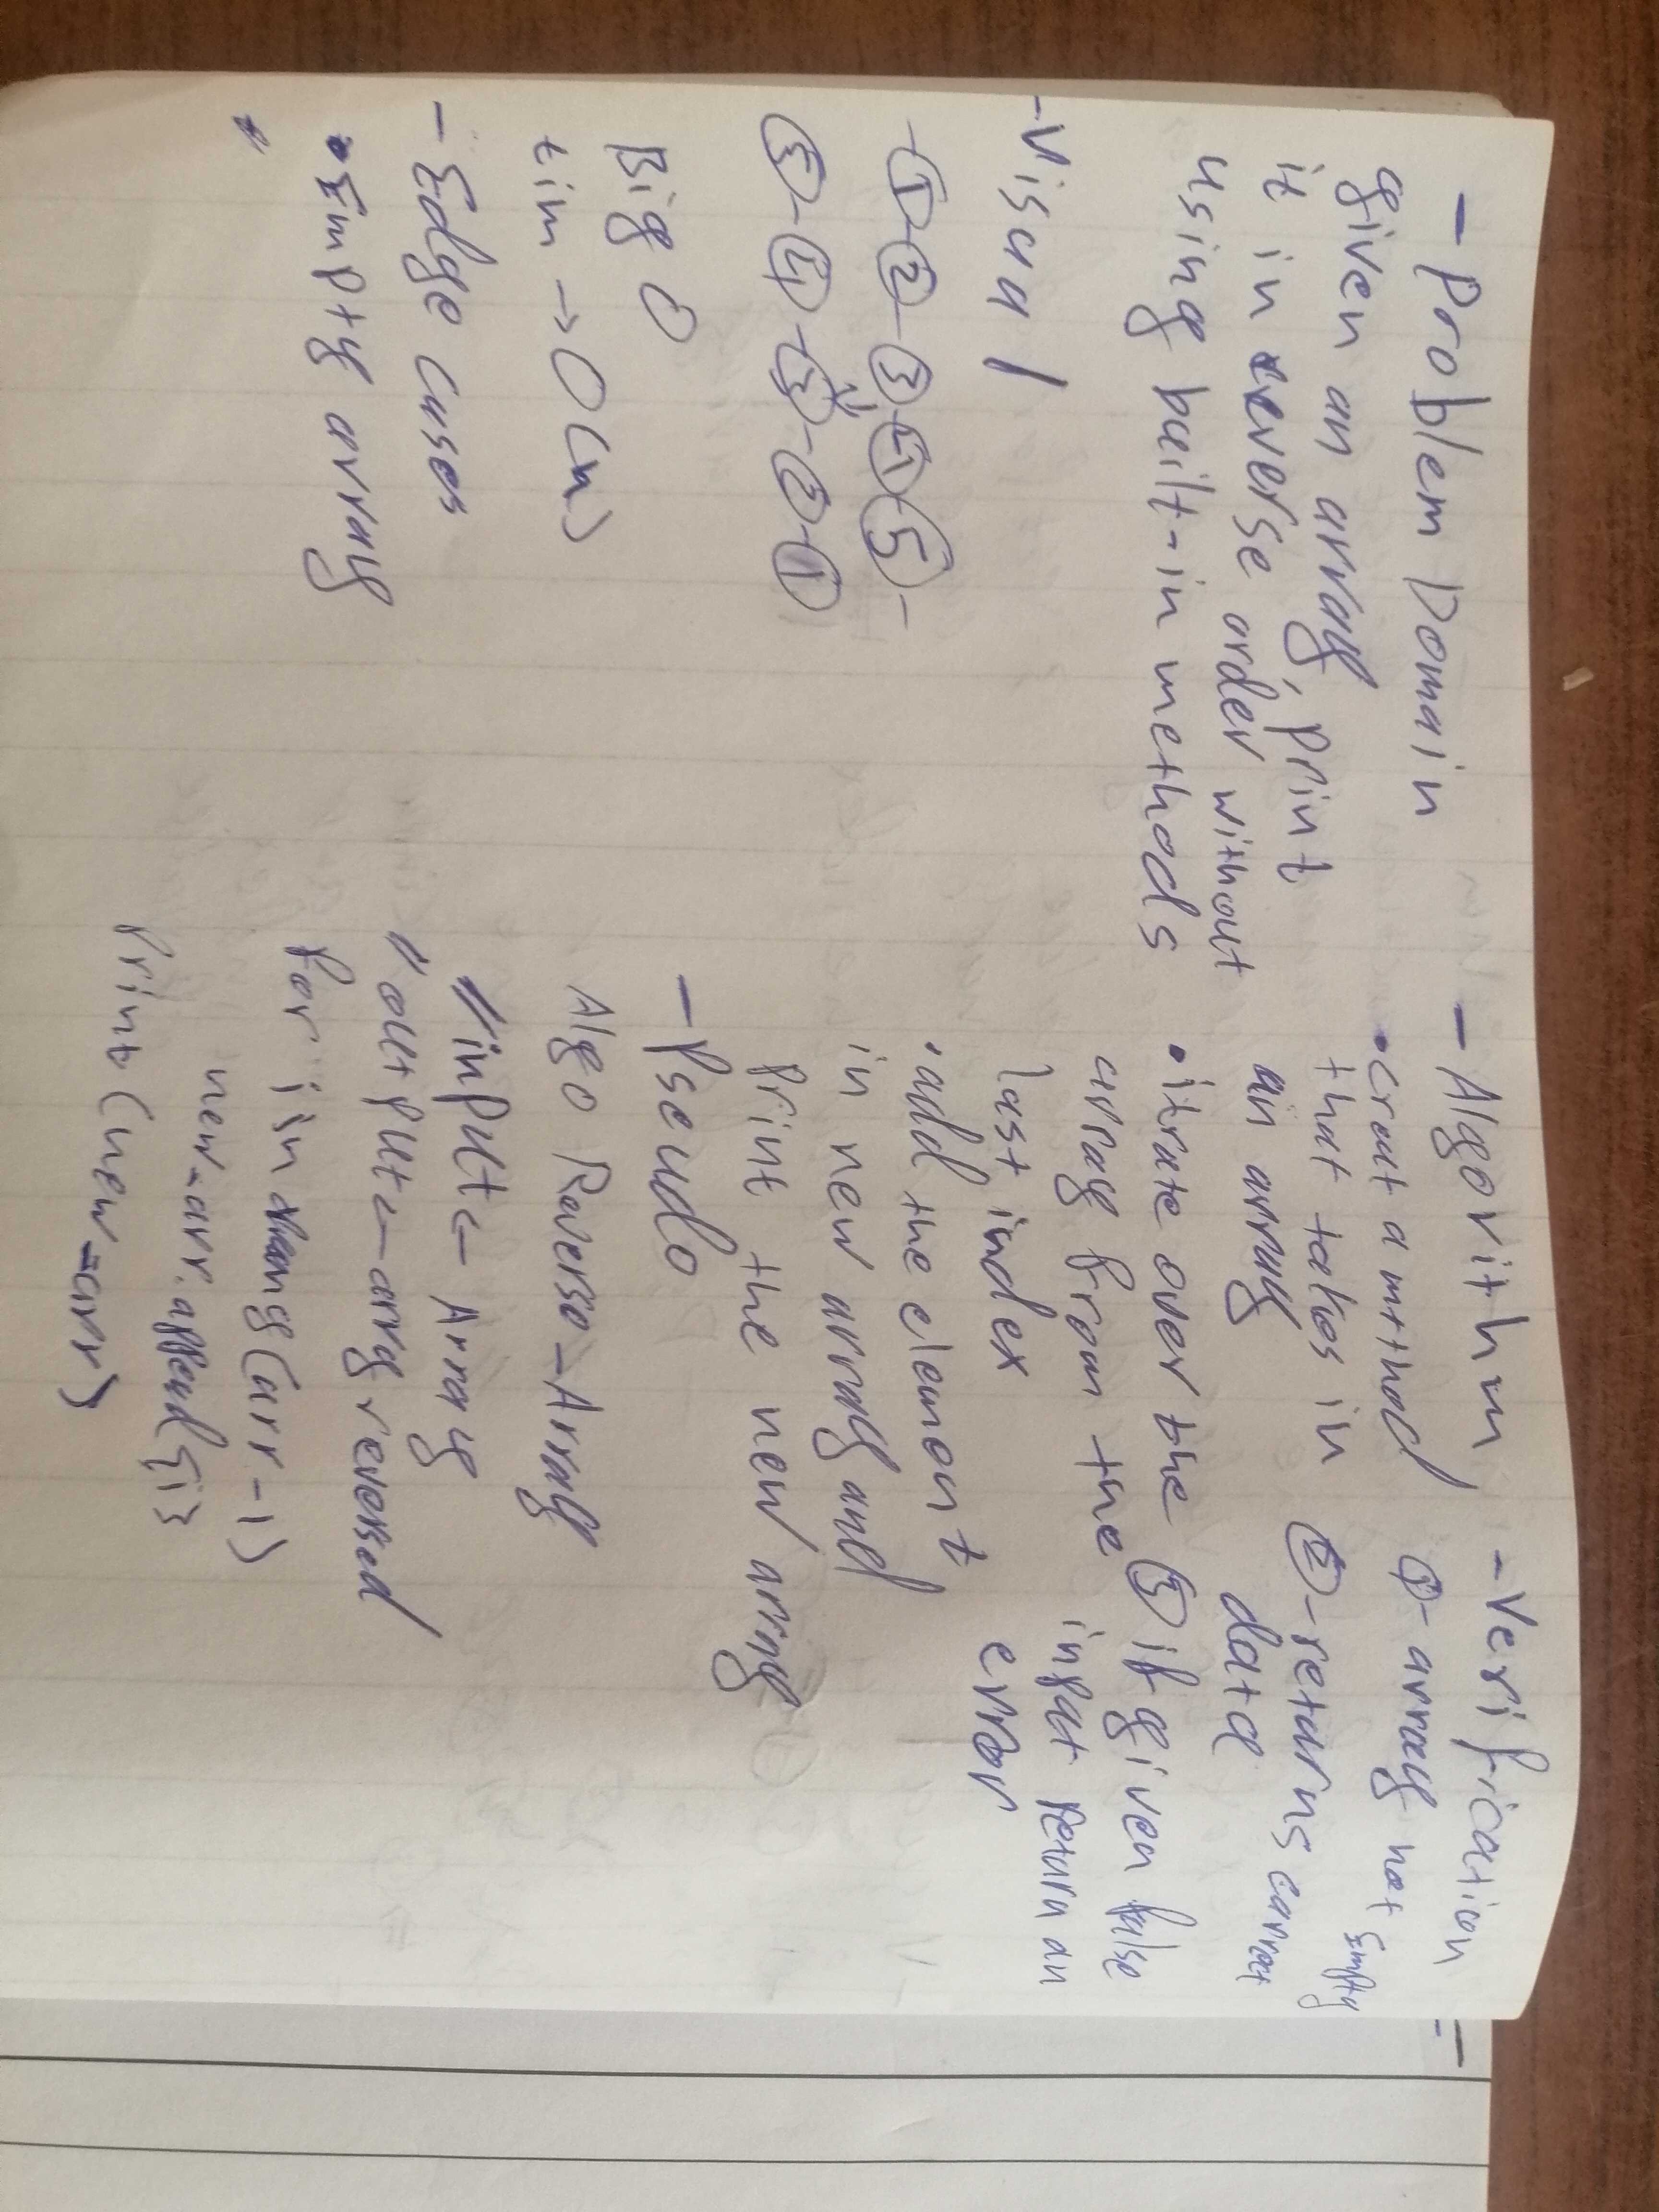 - Problem Domain
given an array, print
it in reverse order without
using built-in methods
- Visual
1 2 3 4 5
5 4 3 2 1
Big O
tim → O(n)
- Edge cases
• Empty array
- Algorithm
• creat a method
that takes in
an array
• itrate over the
array from the
last index
• add the element
in new array and
Print the new array
- Pseudo
Algo Reverse_Array
// input ← Array
// output ← arry reversed
for i in rang (arr -1)
new_arr.append {i}
Print (new_arr)
- Verification
① - array not Empty
② - returns correct
data
③ if given false
input return an
error